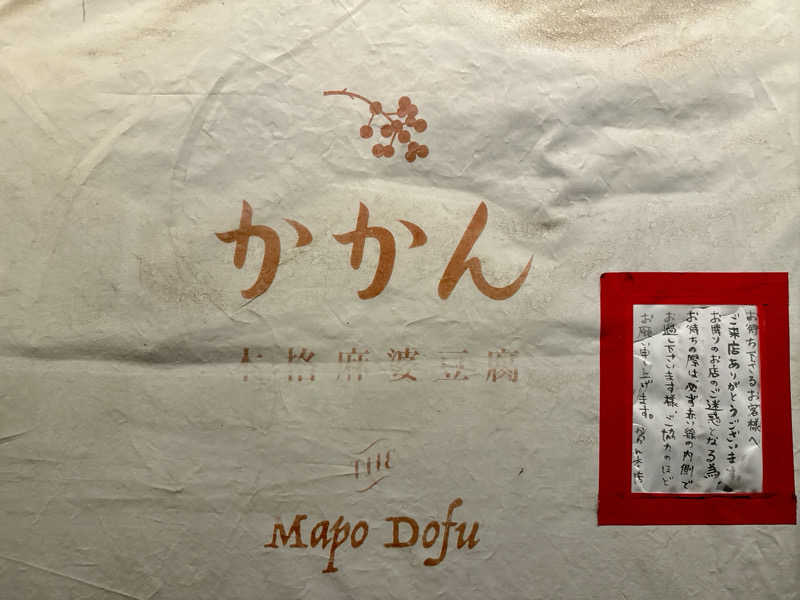 かかん
本格麻婆豆腐
THE
Mapo Dofu
お待ち下さるお客様へ
ご来店ありがとうございます
お隣りのお店のご迷惑となる為、
お待ちの際は必ず赤い線の内側で
お過し下さいます様、ご協力のほど
お願い申し上げます。かかん本店